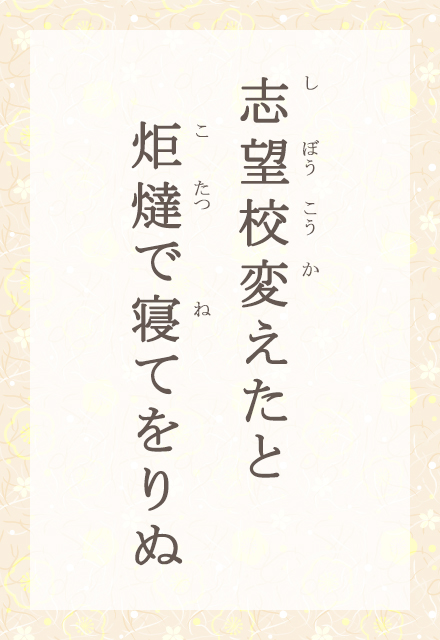 志望校変えたと
しぼうこうか
炬燵で寝てをりぬ
こたつね